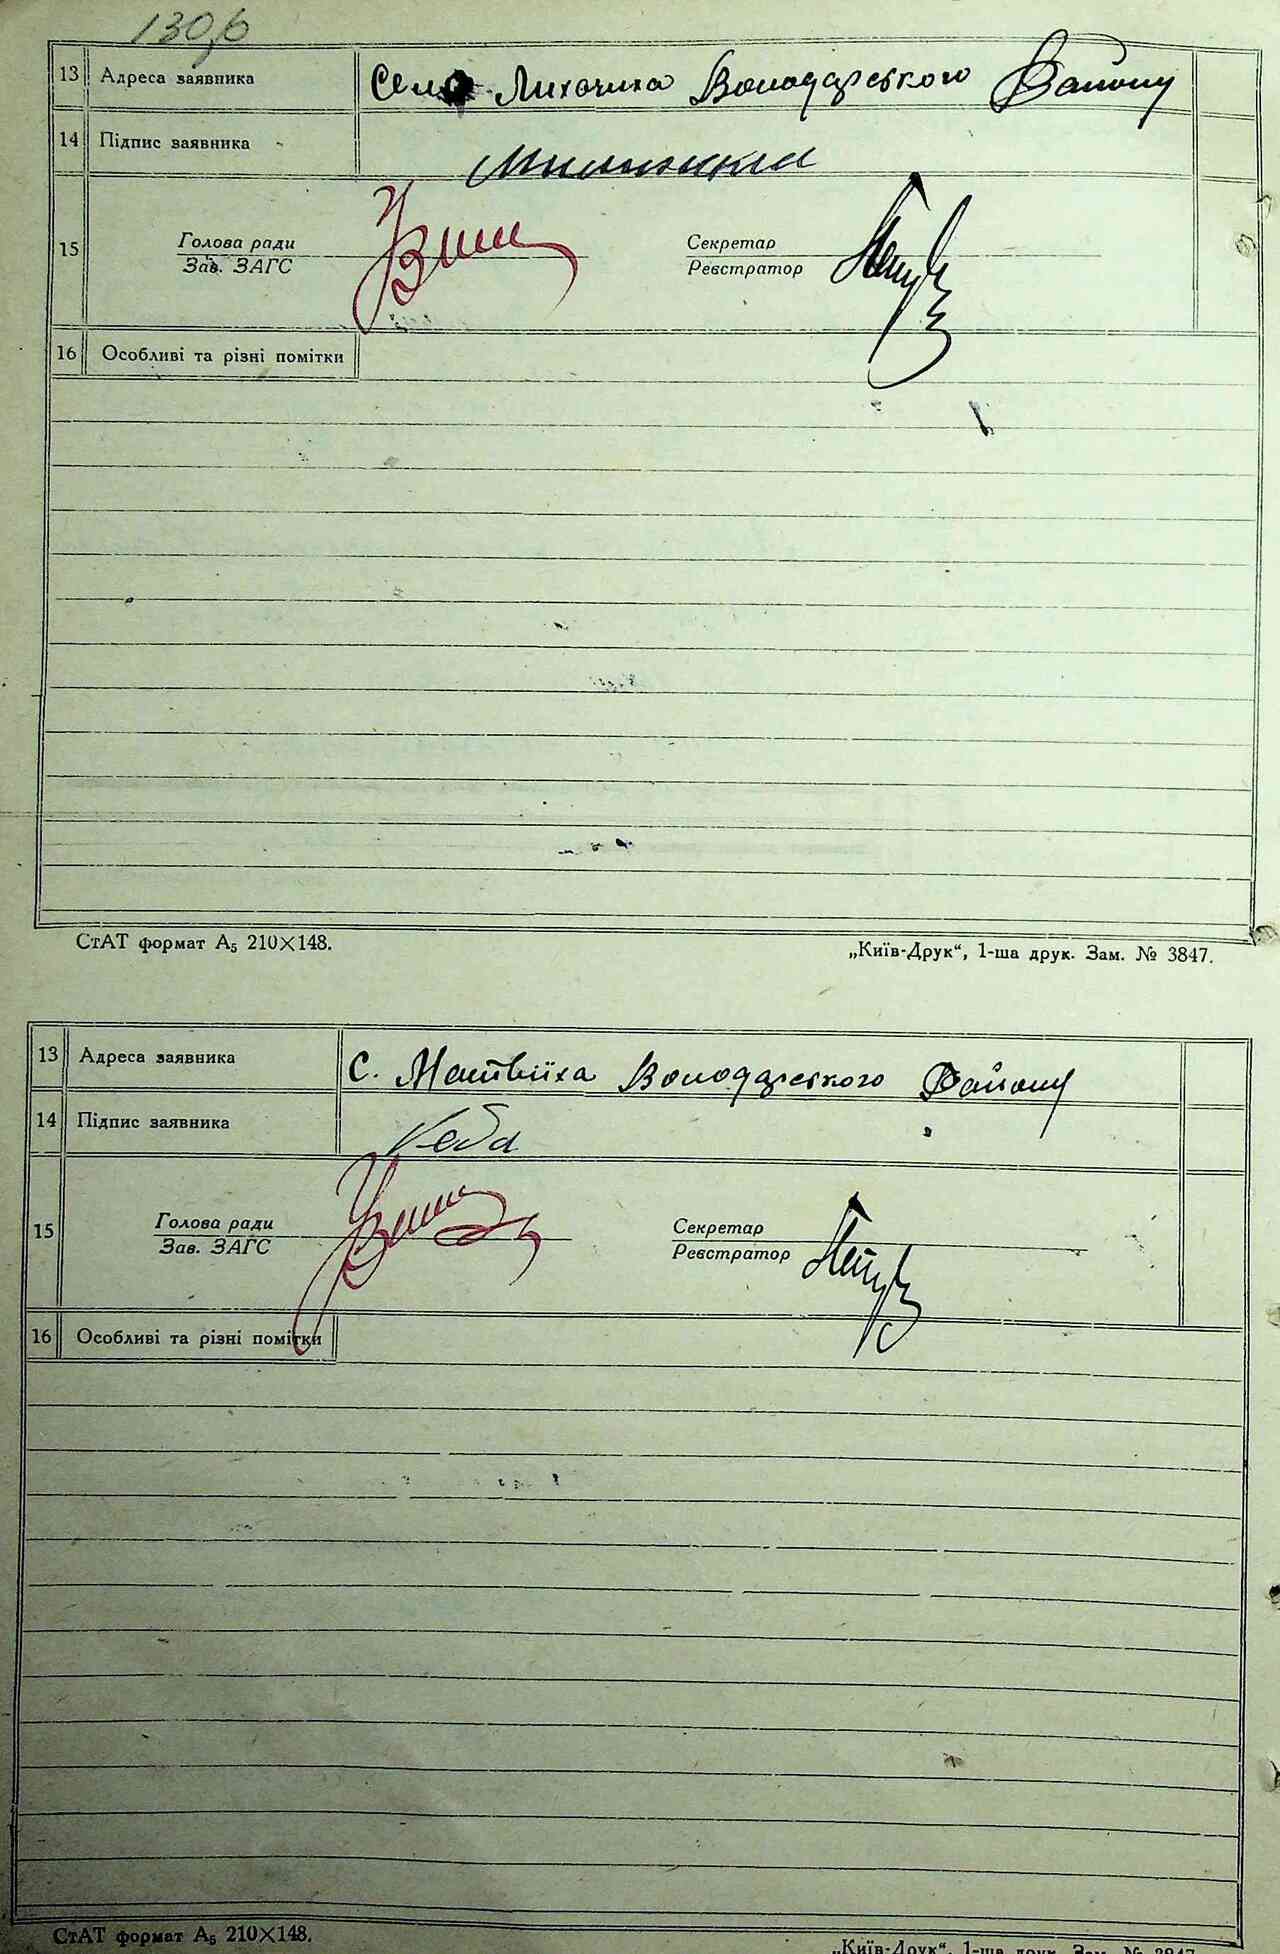 130,6
13 Адреса заявника Село Лихачиха Володарського Району
14 Підпис заявника
15 Голова ради Секретар
Зав. ЗАГС Реєстратор
16 Особливі та різні помітки
СтАТ формат А₅ 210×148. „Київ-Друк“, 1-ша друк. Зам. № 3847.
13 Адреса заявника С. Матвіїха Володарського Району
14 Підпис заявника
15 Голова ради Секретар
Зав. ЗАГС Реєстратор
16 Особливі та різні помітки
СтАТ формат А₅ 210×148. „Київ-Друк“, 1-ша друк. Зам. № 3847.